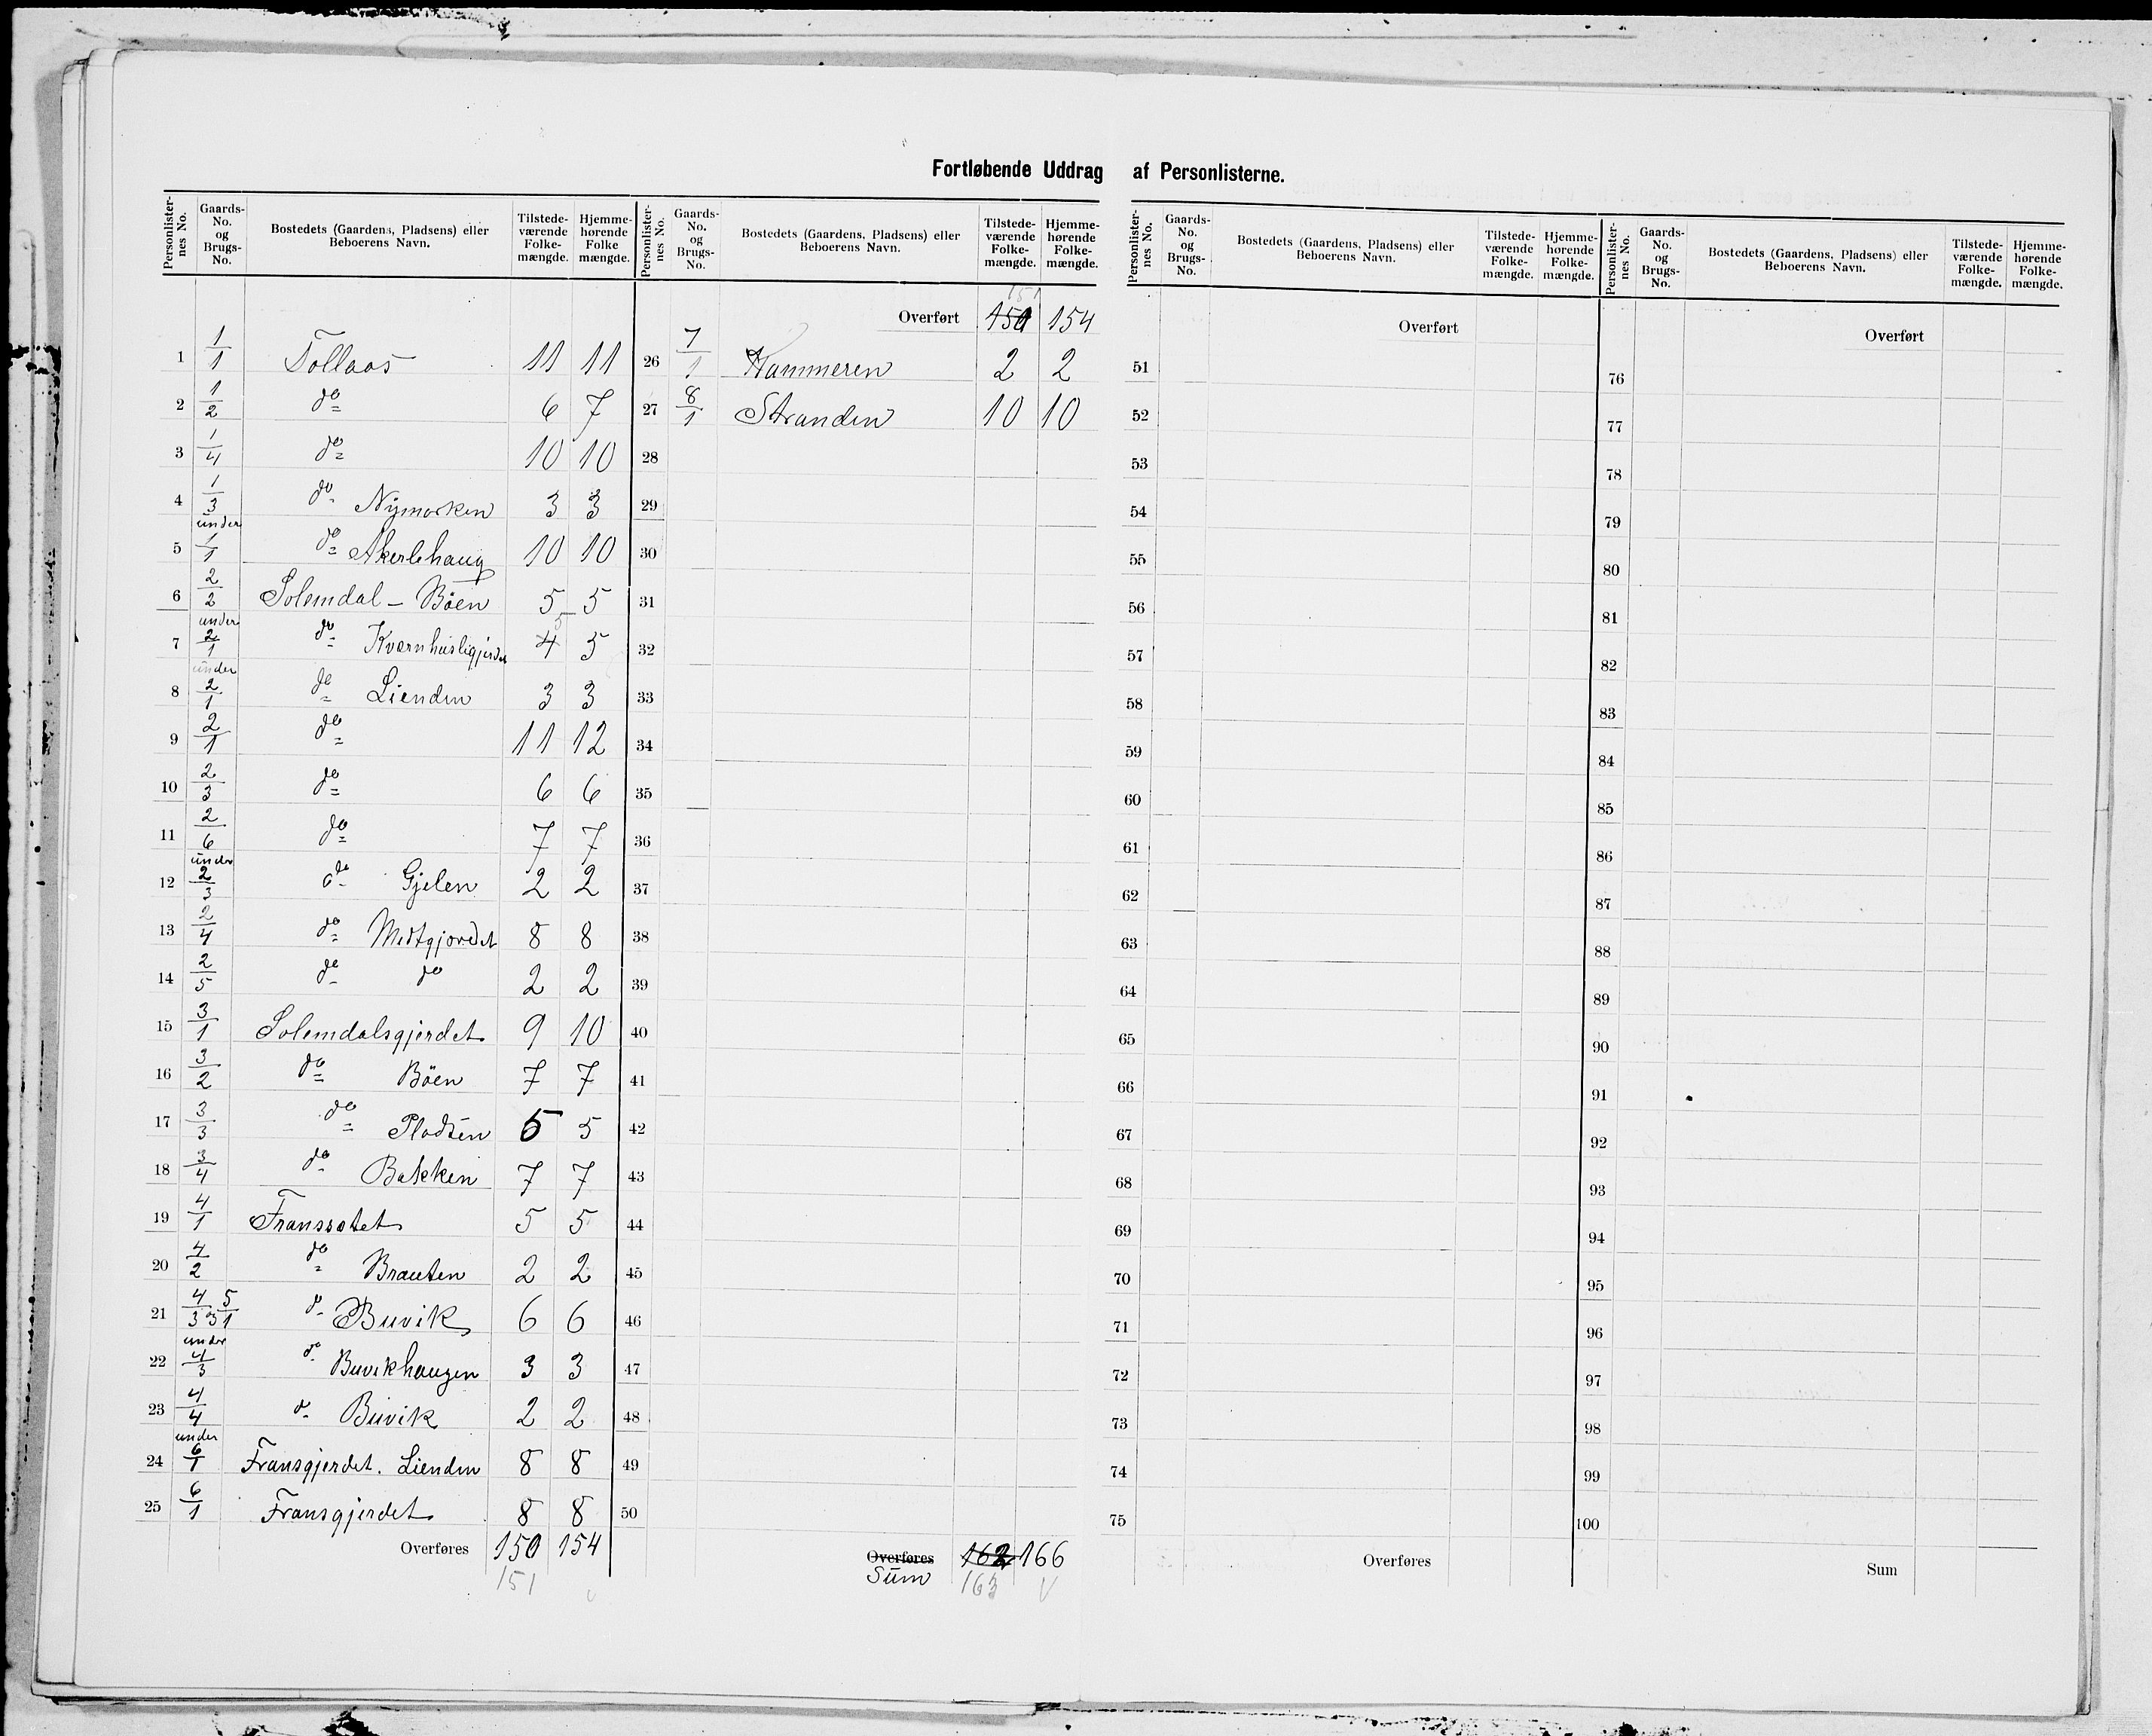 Fortløbende Uddrag af Personlisterne.
Personlisternes No. Gaards-No. og Brugs-No. Bostedets (Gaardens, Pladsens) eller Beboerens Navn. Tilstedeværende Folkemængde. Hjemmehørende Folkemængde.
1 1/1 Tollaas 11 11
2 1/2 do 6 7
3 1/4 do 10 10
4 1/3 do Nymoken 3 3
5 under 1/1 do Akerlehaug 10 10
6 2/2 Solemdal - Böen 5 5
7 under 2/1 do Kværnhusligjerdet 4 5 5
8 under 2/1 do Lienden 3 3
9 2/1 do 11 12
10 2/3 do 6 6
11 2/6 do 7 7
12 under 2/3 do Gjelen 2 2
13 2/4 do Midtgjordet 8 8
14 2/5 do do 2 2
15 3/1 Solemdalsgjerdet 9 10
16 3/2 do Böen 7 7
17 3/3 do Pladsen 5 5
18 3/4 do Bakken 7 7
19 4/1 Franssætet 5 5
20 4/2 do Brauten 2 2
21 4/3 5/1 do Buvik 6 6
22 under 4/3 do Buvikhaugen 3 3
23 4/4 do Buvik 2 2
24 under 6/1 Fransgjerdet. Lienden 8 8
25 6/1 Fransgjerdet 8 8
Overføres 150 154
151
Personlisternes No. Gaards-No. og Brugs-No. Bostedets (Gaardens, Pladsens) eller Beboerens Navn. Tilstedeværende Folkemængde. Hjemmehørende Folkemængde.
151
Overført 150 154
26 7/1 Hammeren 2 2
27 8/1 Stranden 10 10
28
29
30
31
32
33
34
35
36
37
38
39
40
41
42
43
44
45
46
47
48
49
50
Overføres 162 166
Sum 163
Personlisternes No. Gaards-No. og Brugs-No. Bostedets (Gaardens, Pladsens) eller Beboerens Navn. Tilstedeværende Folkemængde. Hjemmehørende Folkemængde.
Overført
51
52
53
54
55
56
57
58
59
60
61
62
63
64
65
66
67
68
69
70
71
72
73
74
75
Overføres
Personlisternes No. Gaards-No. og Brugs-No. Bostedets (Gaardens, Pladsens) eller Beboerens Navn. Tilstedeværende Folkemængde. Hjemmehørende Folkemængde.
Overført
76
77
78
79
80
81
82
83
84
85
86
87
88
89
90
91
92
93
94
95
96
97
98
99
100
Sum